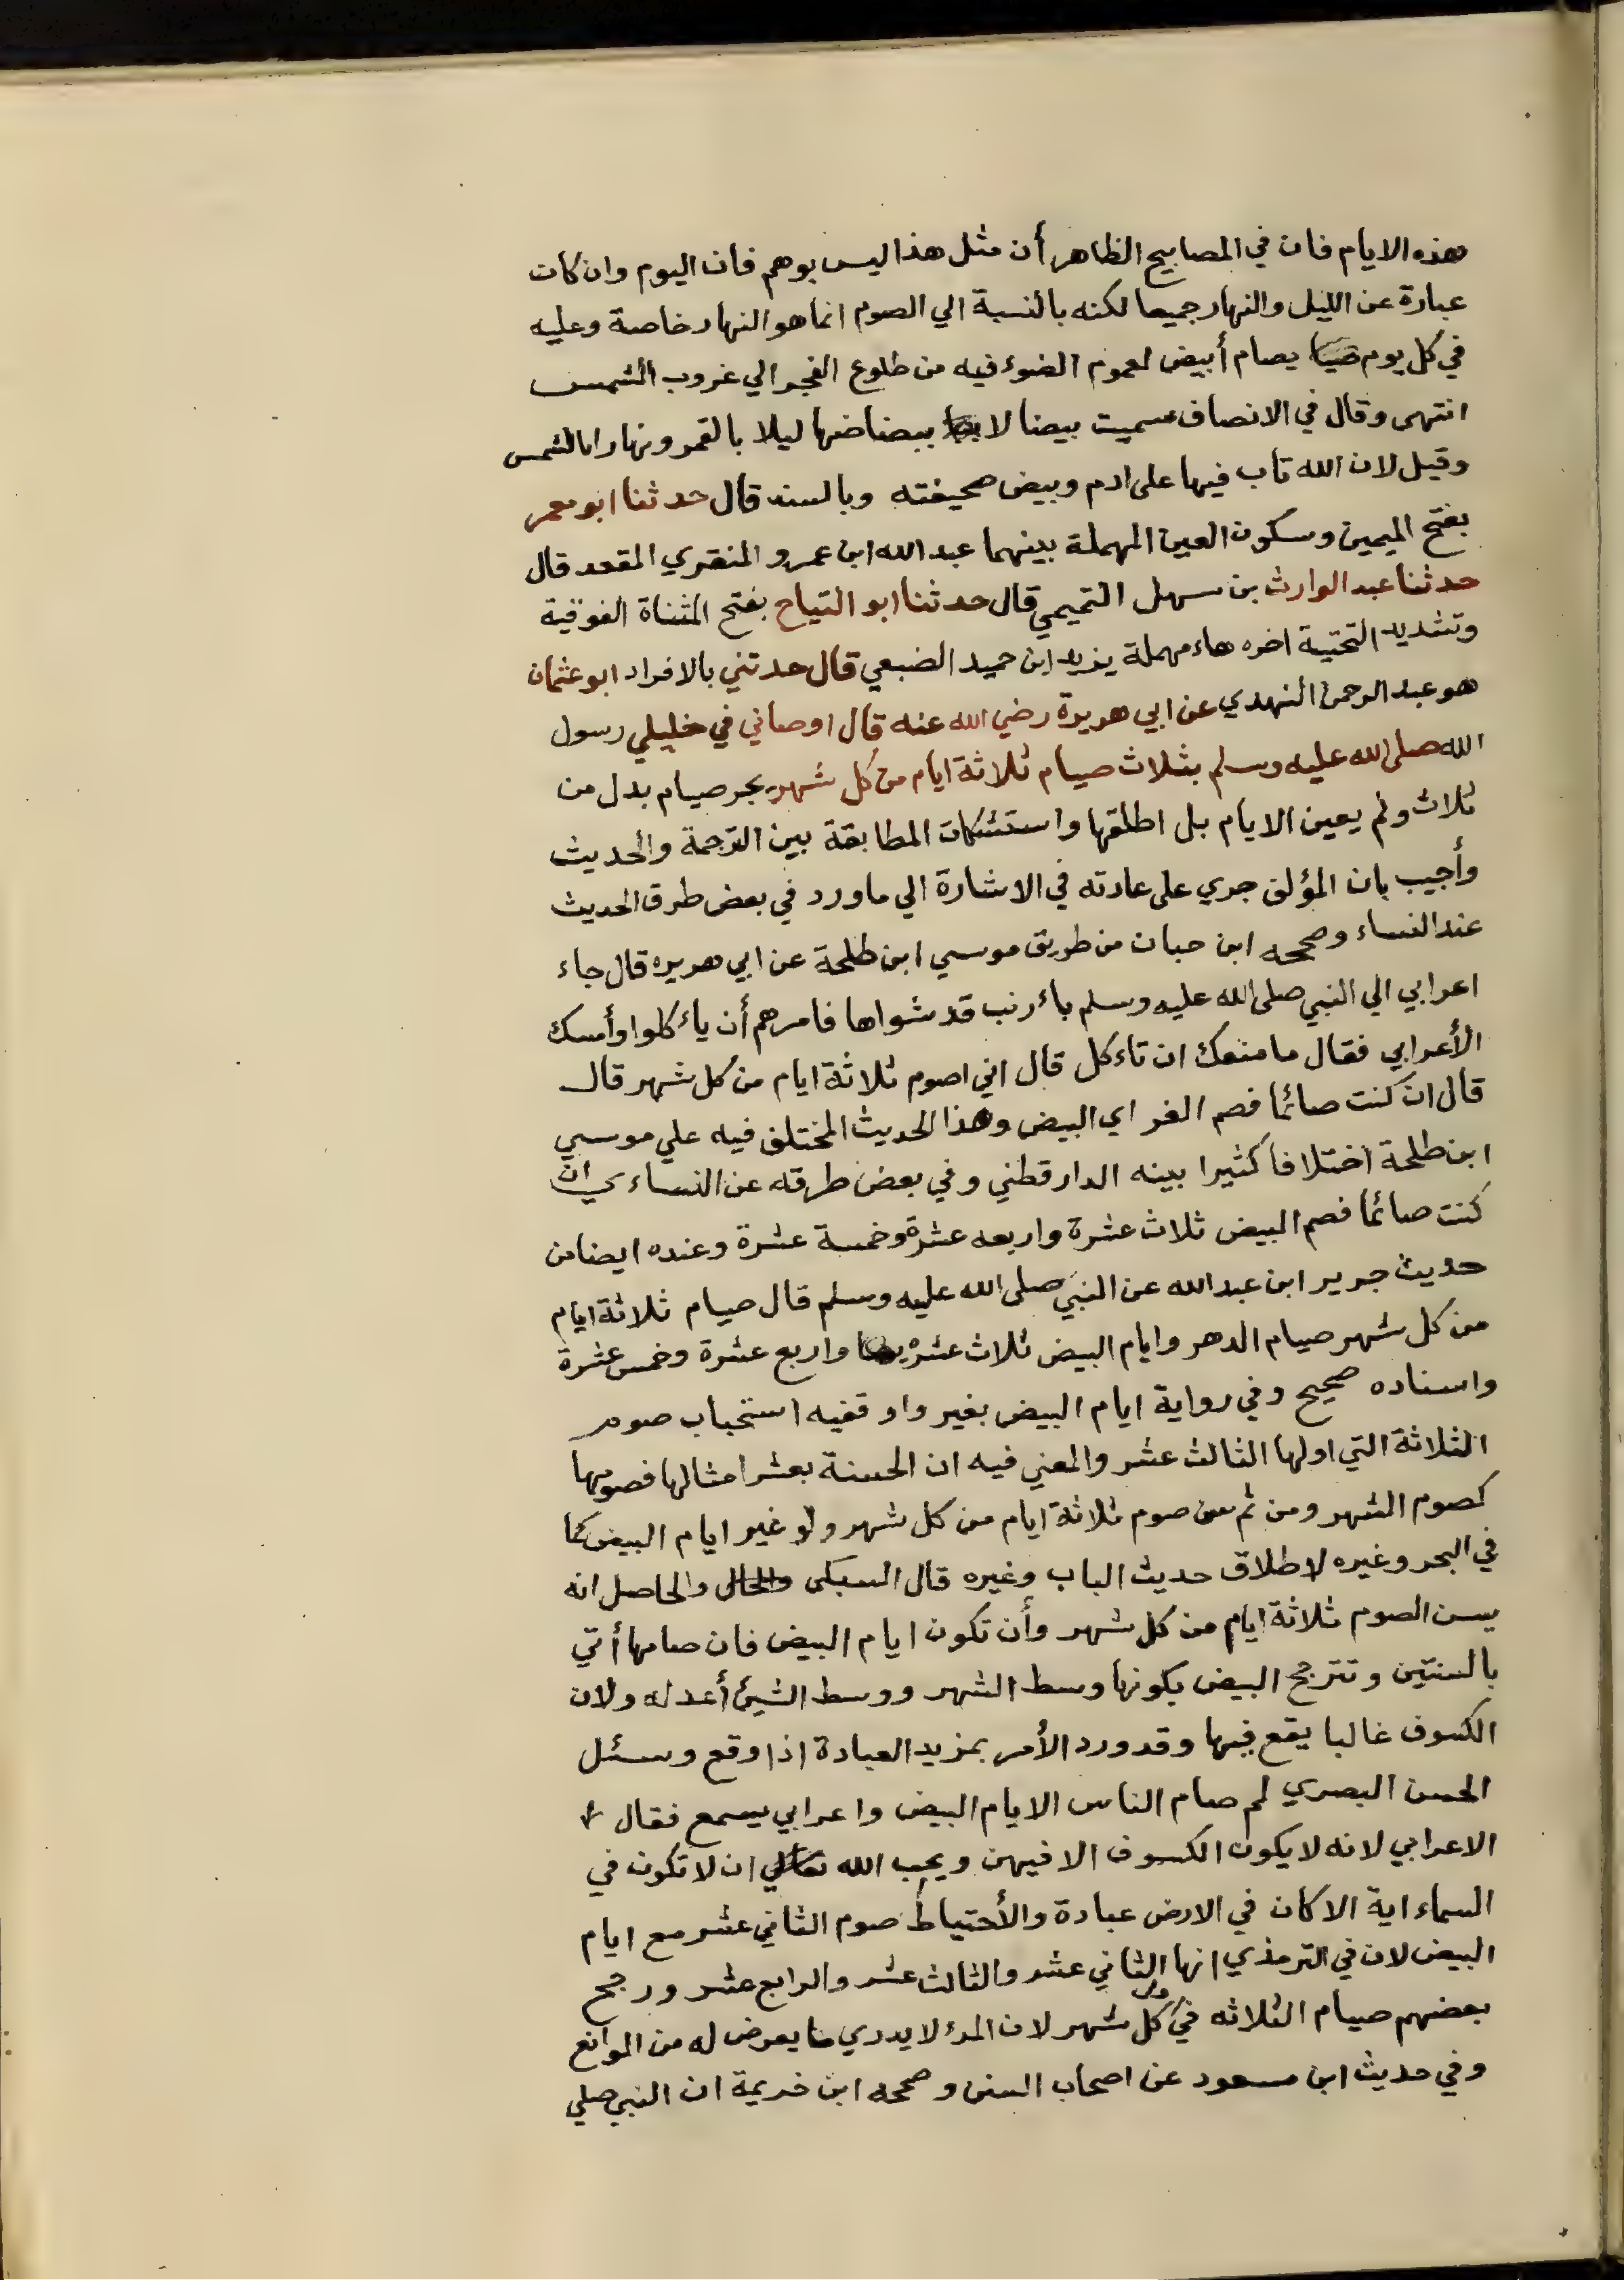 هذه الايام فان في المصابيح الظاهر أن مثل هذا ليس بوهم فان اليوم وان كان
عبارة عن الليل والنهار جميعا لكنه بالنسبة الي الصوم انما هو النهار خاصة وعليه
في كل يوم يصام أبيض لعموم الضوء فيه من طلوع الفجر الي غروب الشمس
انتهى وقال في الانصاف سميت بيضا لا ببضاضها ليلا بالقمر ونهارا بالشمس
وقيل لان الله تاب فيها على ادم وبيض صحيفته وبالسند قال حدثنا ابو معمر
بفتح الميمين وسكون العين المهملة بينهما عبد الله ابن عمرو المنقري المقعد قال
حدثنا عبد الوارث بن سهل التميمي قال حدثنا ابو التياح بفتح المثناة الفوقية
وتشديد التحتية اخره هاء مهملة يزيد ابن حميد الضبعي قال حدثني بالافراد ابو عثمان
هو عبد الرحمن النهدي عن ابي هريرة رضي الله عنه قال اوصاني في خليلي رسول
الله صلى الله عليه وسلم بثلاث صيام ثلاثة ايام من كل شهر بجر صيام بدل من
ثلاث ولم يعين الايام بل اطلقها واستشكلت المطابقة بين الترجمة والحديث
وأجيب بان المؤلف جري على عادته في الاشارة الي ما ورد في بعض طرق الحديث
عند النساء وصححه ابن حبان من طريق موسي ابن طلحة عن ابي هريره قال جاء
اعرابي الي النبي صلى الله عليه وسلم بأرنب قد شواها فامرهم أن يأكلوا وأمسك
الأعرابي فقال ما منعك ان تاءكل قال اني اصوم ثلاثة ايام من كل شهر قال
قال ان كنت صائما فصم الغر اي البيض وهذا الحديث المختلف فيه علي موسي
ابن طلحة اختلافا كثيرا بينه الدارقطني وفي بعض طرقه عن النساءي ان
كنت صائما فصم البيض ثلاث عشرة واربعه عشرة وخمسة عشرة وعنده ايضا من
حديث جرير ابن عبد الله عن النبي صلى الله عليه وسلم قال صيام ثلاثة ايام
من كل شهر صيام الدهر وايام البيض ثلاث عشرة واربع عشرة وخمس عشرة
واسناده صحيح وفي رواية ايام البيض بغير واو ففيه استحباب صوم
الثلاثة التي اولها الثالث عشر والمعني فيه ان الحسنة بعشر امثالها فصومها
كصوم الشهر ومن ثم سن صوم ثلاثة ايام من كل شهر ولو غير ايام البيض كما
في البحر وغيره لاطلاق حديث الباب وغيره قال السبكي والحال والحاصل انه
يسن الصوم ثلاثة ايام من كل شهر وأن تكون ايام البيض فان صامها أتي
بالسنتين وتترجح البيض بكونها وسط الشهر ووسط الشيئ أعدله ولان
الكسوف غالبا يقع فيها وقد ورد الأمر بمزيد العبادة اذا وقع وسئل
الحسن البصري لم صام الناس الايام البيض واعرابي يسمع فقال
الاعرابي لانه لا يكون الكسوف الا فيهن ويحب الله تعالي ان لا تكون في
السماء اية الا كان في الارض عبادة والأحتياط صوم الثاني عشر مع ايام
البيض لان في الترمذي انها الثاني عشر والثالث عشر والرابع عشر ورجح
بعضهم صيام الثلاثه في كل شهر لان المرء لا يدري ما يعرض له من الموانع
وفي حديث ابن مسعود عن اصحاب السنن وصححه ابن خزيمة ان النبي صلي